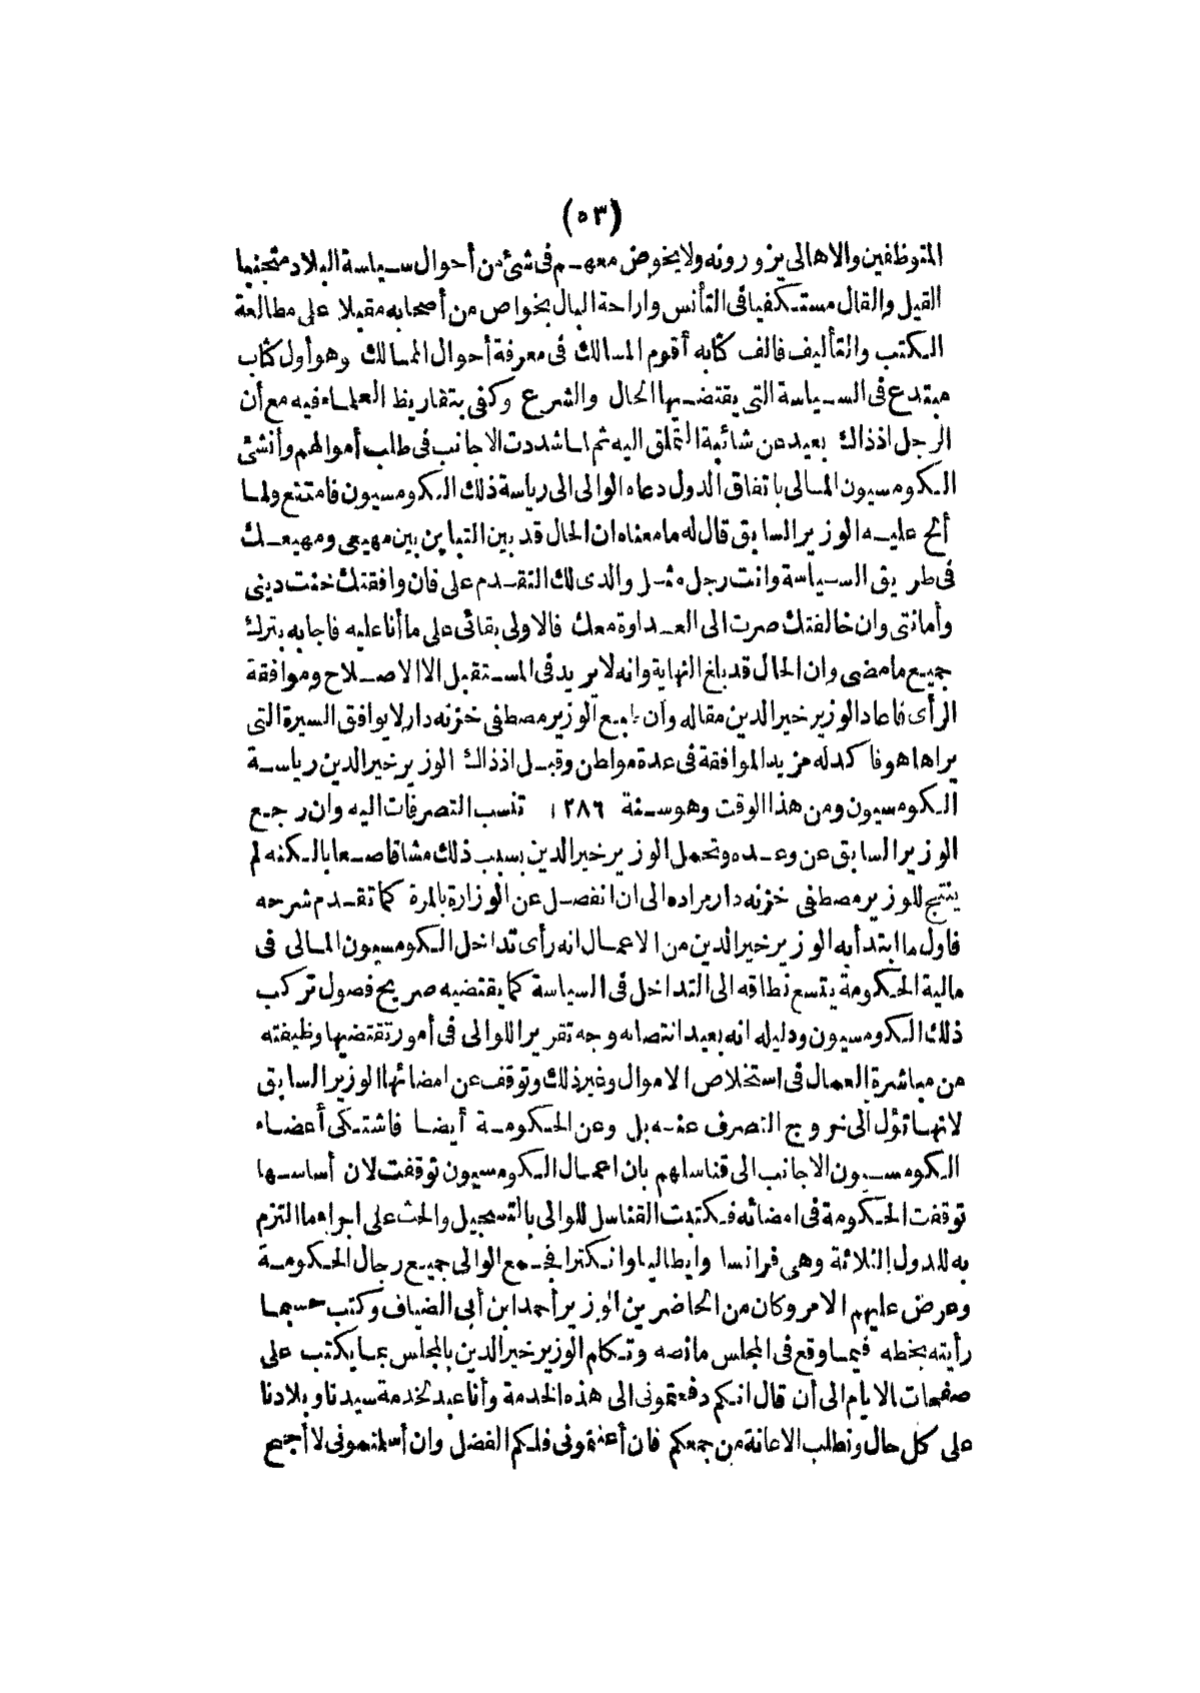 (٥٣)
المتوظفين والاهالى يزورونه ولا يخوض معهم فى شئ من أحوال سياسة البلاد متجنبا
القيل والقال مستكفيا فى التأنس واراحة البال بخواص من أصحابه مقبلا على مطالعة
الكتب والتأليف فالف كتابه أقوم المسالك فى معرفة أحوال الممالك وهو أول كتاب
مبتدع فى السياسة التى يقتضيها الحال والشرع وكفى بتقاريظ العلماء فيه مع أن
الرجل اذذاك بعيد عن شائبة التملق اليه ثم لما شددت الاجانب فى طلب أموالهم وأنشئ
الكومسيون المالى باتفاق الدول دعاه الوالى الى رياسة ذلك الكومسيون فامتنع ولما
ألح عليه الوزير السابق قال له ما معناه ان الحال قد بين التباين بين مهيعى ومهيعك
فى طريق السياسة وانت رجل مثل والدى لك التقدم على فان وافقتك خنت دينى
وأمانتى وان خالفتك صرت الى العداوة معك فالاولى بقائى على ما أنا عليه فاجابه بترك
جميع ما مضى وان الحال قد بلغ النهاية وانه لا يريد فى المستقبل الا الاصلاح وموافقة
الرأى فاعاد الوزير خير الدين مقاله وأن طبع الوزير مصطفى خزنه دار لا يوافق السيرة التى
يراها هو فاكد له مزيد الموافقة فى عدة مواطن وقبل اذذاك الوزير خير الدين رياسة
الكومسيون ومن هذا الوقت وهو سنة ١٢٨٦ تنسب التصرفات اليه وان رجع
الوزير السابق عن وعده وتحمل الوزير خير الدين بسبب ذلك مشاقا صعابا لكنه لم
ينتج للوزير مصطفى خزنه دار مراده الى ان انفصل عن الوزارة بالمرة كما تقدم شرحه
فاول ما ابتدأ به الوزير خير الدين من الاعمال انه رأى تداخل الكومسيون المالى فى
مالية الحكومة يتسع نطاقه الى التداخل فى السياسة كما يقتضيه صريح فصول تركب
ذلك الكومسيون ودليله انه بعيد انتصابه وجه تقريرا للوالى فى أمور تقتضيها وظيفته
من مباشرة العمال فى استخلاص الاموال وغير ذلك وتوقف عن امضائها الوزير السابق
لانها تؤل الى خروج التصرف عنه بل وعن الحكومة أيضا فاشتكى أعضاء
الكومسيون الاجانب الى قناسلهم بان اعمال الكومسيون توقفت لان أساسها
توقفت الحكومة فى امضائه فكتبت القناسل للوالى بالتسجيل والحث على اجراء ما التزم
به للدول الثلاثة وهى فرانسا وايطاليا وانكلترا فجمع الوالى جميع رجال الحكومة
وعرض عليهم الامر وكان من الحاضرين الوزير أحمد ابن أبى الضياف وكتب حسبما
رأيته بخطه فيما وقع فى المجلس مانصه وتكلم الوزير خير الدين بالمجلس بما يكتب على
صفحات الايام الى أن قال انكم دفعتمونى الى هذه الخدمة وأنا عبد لخدمة سيدنا وبلادنا
على كل حال ونطلب الاعانة من جمعكم فان أعنتمونى فلكم الفضل وان أسلمتمونى لا أجمح